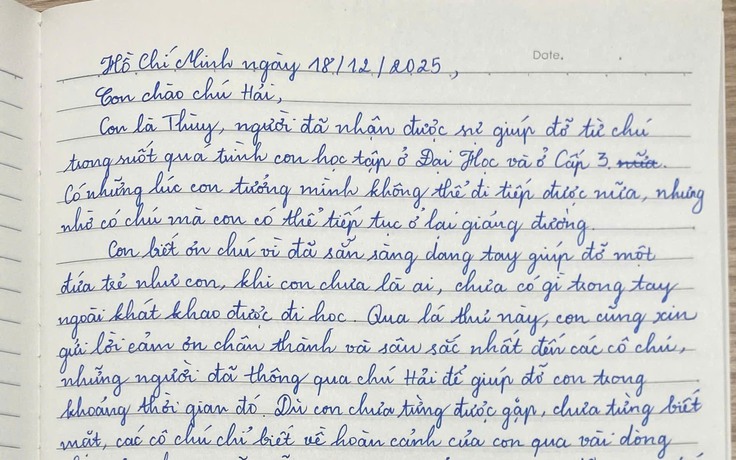 Date.
Hồ Chí Minh ngày 18/12/2025,
Con chào chú Hải,
Con là Thùy, người đã nhận được sự giúp đỡ từ chú
trong suốt quá trình con học tập ở Đại Học và ở Cấp 3 nữa.
Có những lúc con tưởng mình không thể đi tiếp được nữa, nhưng
nhờ có chú mà con có thể tiếp tục ở lại giảng đường.
Con biết ơn chú vì đã sẵn sàng dang tay giúp đỡ một
đứa trẻ như con, khi con chưa là ai, chưa có gì trong tay
ngoài khát khao được đi học. Qua lá thư này, con cũng xin
gửi lời cảm ơn chân thành và sâu sắc nhất đến các cô chú,
những người đã thông qua chú Hải để giúp đỡ con trong
khoảng thời gian đó. Dù con chưa từng được gặp, chưa từng biết
mặt, các cô chú chỉ biết về hoàn cảnh của con qua vài dòng